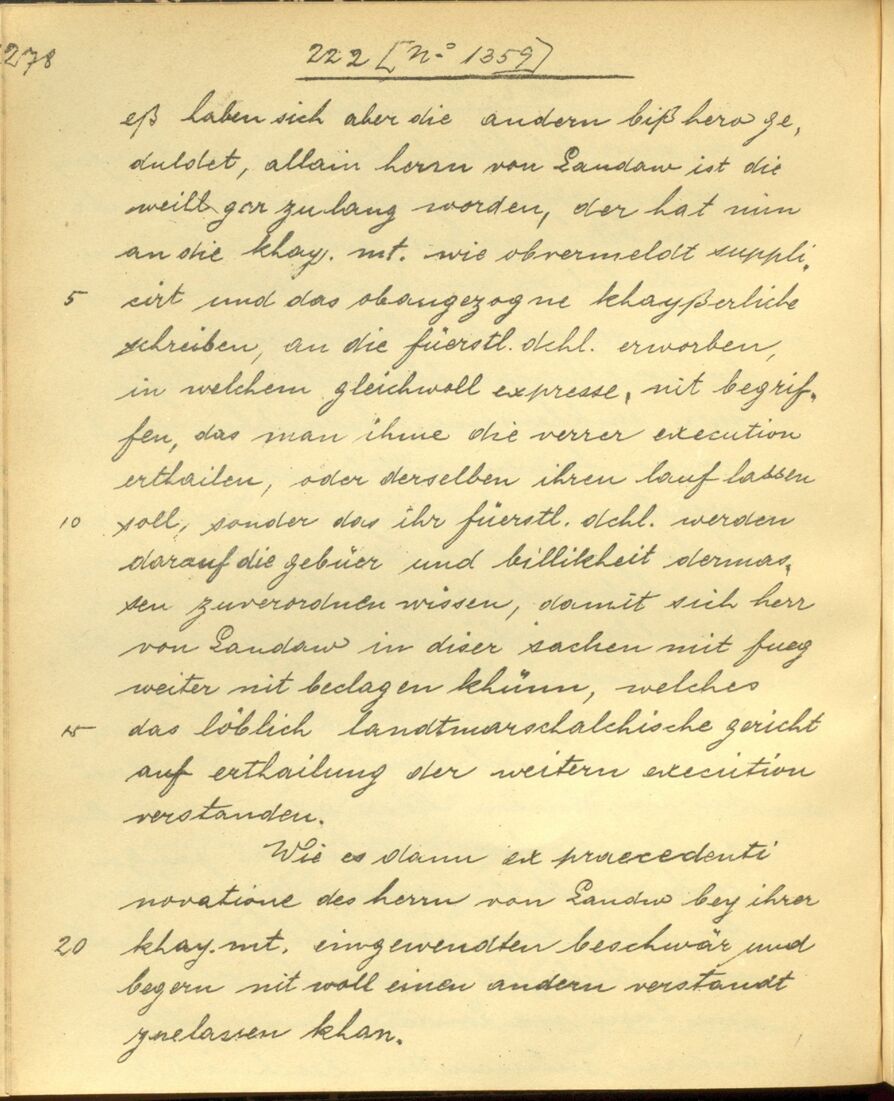 278
222 [No 1359]
eß haben sich aber die andern bißhero ge,
duldet, allain herrn von Landaw ist die
weill gar zu lang worden, der hat nun
an die khay. mt. wie obvermeldt suppli,
5 cirt und das obangezogne khayßerliche
schreiben, an die füerstl. dchl. erworben,
in welchem gleichwoll expresse, nit begrif,
fen, das man ihme die verrer execution
erthailen, oder derselben ihren lauf lassen
10 soll, sonder das ihr füerstl. dchl. werden
darauf die gebüer und billikheit dermas,
sen zuverordnen wissen, damit sich herr
von Landaw in diser sachen mit fueg
weiter nit beclagen khünn, welches
15 das löblich landtmarschalchische gericht
auf erthailung der weitern execution
verstanden.
Wie es dann ex praecedenti
novatione des herrn von Landw bey ihrer
20 khay. mt. eingewendten beschwär und
begern nit woll einen andern verstandt
zuelassen khan.